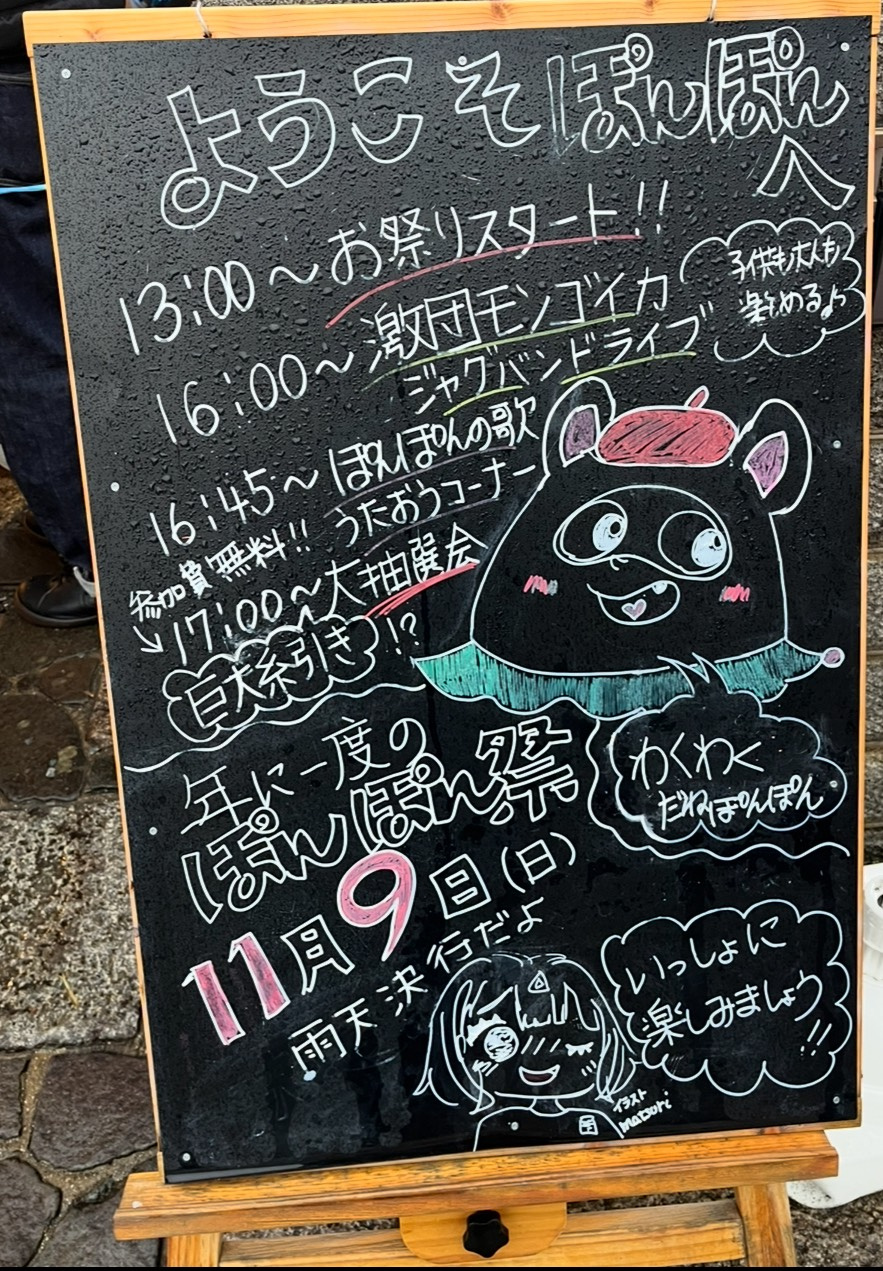 ようこそぽんぽん
へ
13:00～お祭りスタート!!
子供も大人も
楽しめるよっ
16:00～激団モンゴイカ
ジャグバンドライブ
16:45～ぽんぽんの歌
うたおうコーナー
参加費無料!!
17:00～大抽選会
百犬糸引き!?
年に一度の
ぽんぽん祭
わくわく
だねぽんぽん
11月9日(日)
雨天決行だよ
いっしょに
楽しみましょう!!
イラスト
matsuri